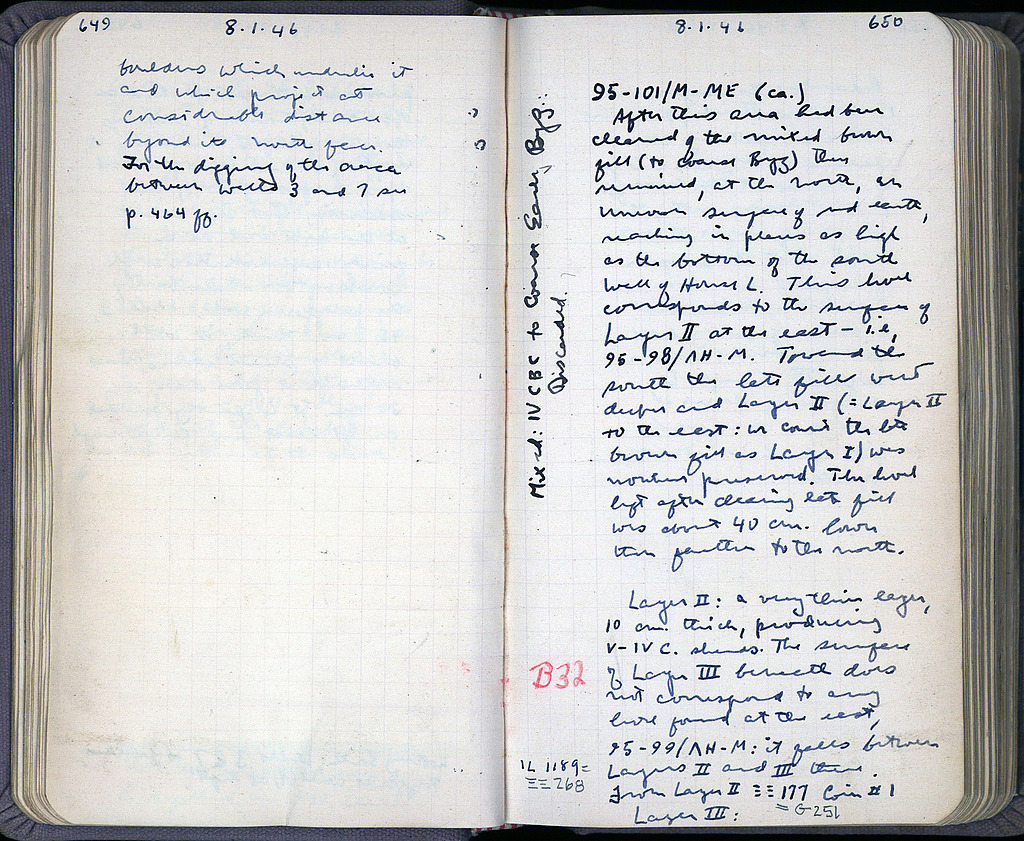 649
8.1.46
boulders which underlie it
and which project at
considerable distance
beyond its north face.
For the digging of the area
between wells 3 and 7 see
p. 464 ff.
8.1.46
650
Mixed: IV C BC to Coarse Earlier Byz.
Discarded.
95-101/Μ-ΜΕ (ca.)
After this area had been
cleared of the mixed brown
fill (to coarse Byz) there
remained, at the north, an
uneven surface of red earth,
reaching in places as high
as the bottom of the south
wall of House L. This level
corresponds to the surface of
Layer II at the east - i.e,
95-98/ΛΗ-Μ. Toward the
south the late fill went
deeper and Layer II (= Layer II
to the east: we count the late
brown fill as Layer I) was
nowhere preserved. The level
left after clearing late fill
was about 40 cm. lower
than farther to the north.
Layer II: a very thin layer,
10 cm. thick, producing
V-IV C. sherds. The surface
of Layer III beneath does
not correspond to any
level found at the east,
95-99/ΛΗ-Μ: it falls between
Layers II and III there.
From Layer II ΞΞ 177 Coin #1
= G 251
Layer III:
B32
IL 1189 =
ΞΞ 268